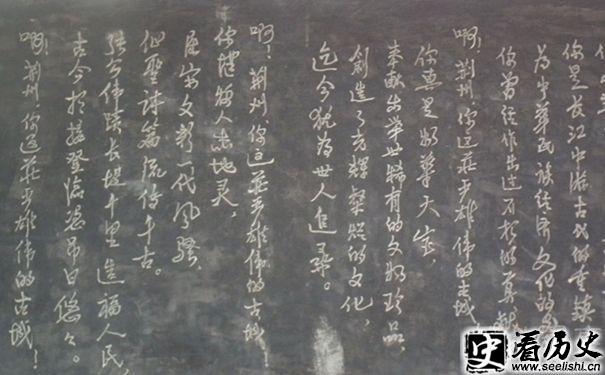 你是长江中游古代的重镇
为中华民族经济文化的
你曾经作出过不朽的贡献
啊!荆州,你这莊严雄伟的古城
你真是物华天宝,
奉献出举世稀有的文物珍品,
创造了光辉灿烂的文化,
迄今犹为世人追尋。
啊!荆州,你这莊严雄伟的古城
你堪称人杰地灵,
屈宋文彩一代风骚,
诗篇流传千古。
伟绩长堤千里造福人民,
古今登临凭吊日悠々。
啊!荆州,你这莊严雄伟的古城!
史 看历史
www.seelishi.cn